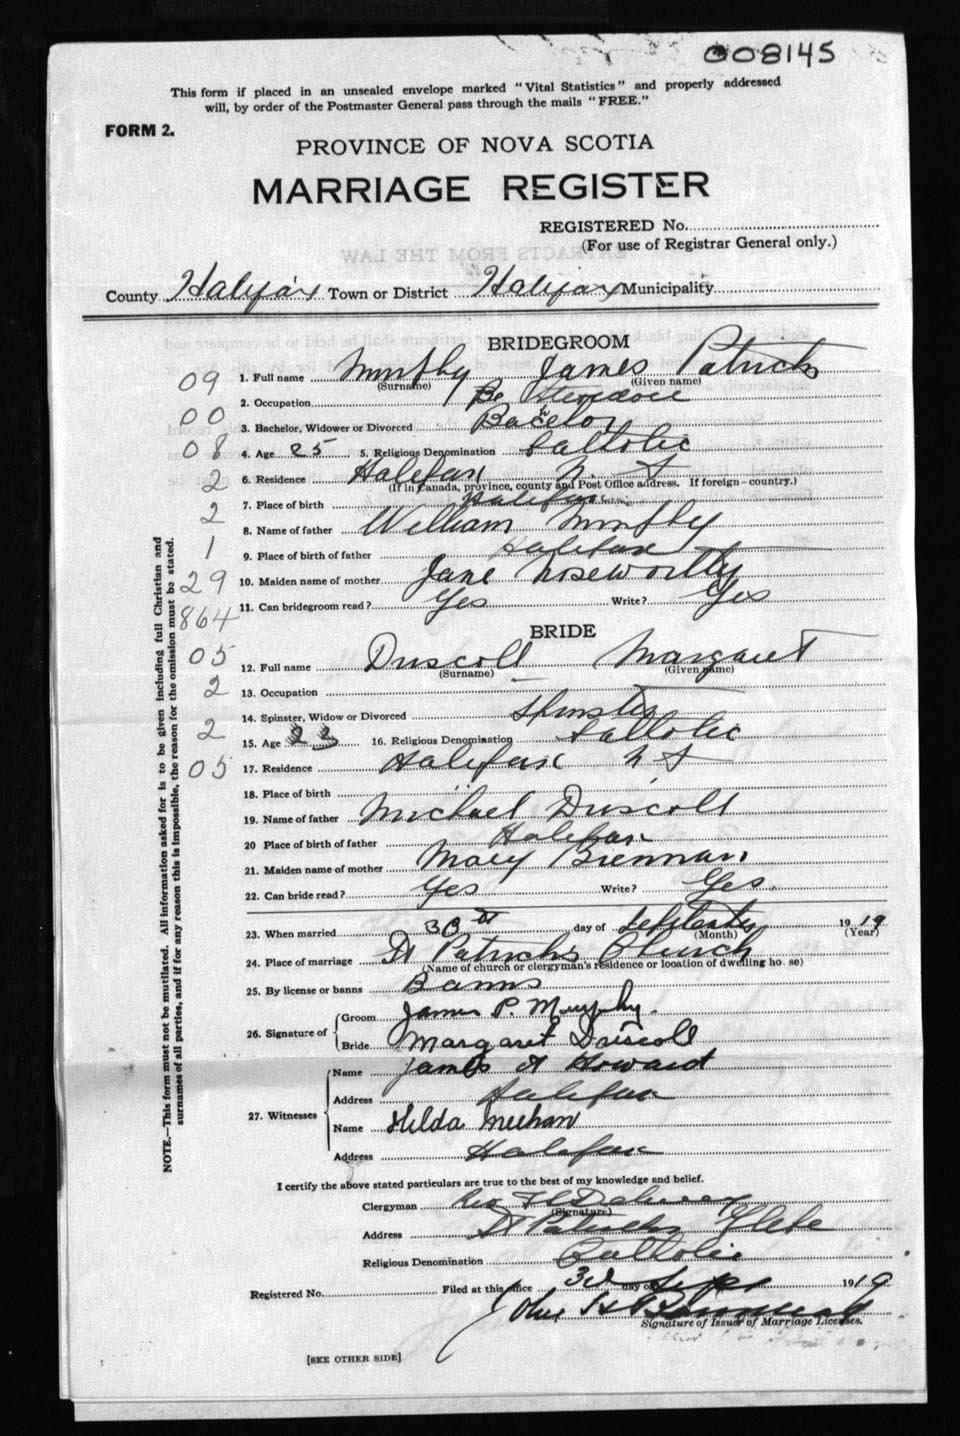 008145
This form if placed in an unsealed envelope marked "Vital Statistics" and properly addressed
will, by order of the Postmaster General pass through the mails "FREE."
FORM 2.
PROVINCE OF NOVA SCOTIA
MARRIAGE REGISTER
REGISTERED No.
(For use of Registrar General only.)
County Halifax Town or District Halifax Municipality
BRIDEGROOM
09 1. Full name Murphy James Patrick
(Surname) (Given name)
2. Occupation
00 3. Bachelor, Widower or Divorced Bachelor
08 4. Age 25 5. Religious Denomination Catholic
6. Residence Halifax N. S
2 (If in Canada, province, county and Post Office address. If foreign - country.)
7. Place of birth Halifax
2 8. Name of father William Murphy
1 9. Place of birth of father Halifax
29 10. Maiden name of mother Jane Noseworthy
864 11. Can bridegroom read? Yes Write? Yes
BRIDE
05 12. Full name Driscoll Margaret
(Surname) (Given name)
2 13. Occupation
14. Spinster, Widow or Divorced Spinster
2 15. Age 23 16. Religious Denomination Catholic
05 17. Residence Halifax N S
18. Place of birth "
19. Name of father Michael Driscoll
20 Place of birth of father Halifax
21. Maiden name of mother Mary Brennan
22. Can bride read? Yes Write? Yes.
23. When married 30 day of September 1919
(Month) (Year)
24. Place of marriage St Patricks Church
(Name of church or clergyman's residence or location of dwelling ho. se)
25. By license or banns Banns
26. Signature of Groom James P. Murphy.
Bride Margaret Driscoll
27. Witnesses Name James A Howard
Address Halifax
Name Hilda Meehan
Address Halifax
I certify the above stated particulars are true to the best of my knowledge and belief.
Clergyman Rev
(Signature)
Address St Patricks Glebe
Religious Denomination Catholic
Registered No. Filed at this office 30 day of Sept 1919
John
Signature of Issuer of Marriage Licenses.
[SEE OTHER SIDE]
NOTE.—This form must not be mutilated. All information asked for is to be given including full Christian and
surnames of all parties, and if for any reason this is impossible, the reason for the omission must be stated.